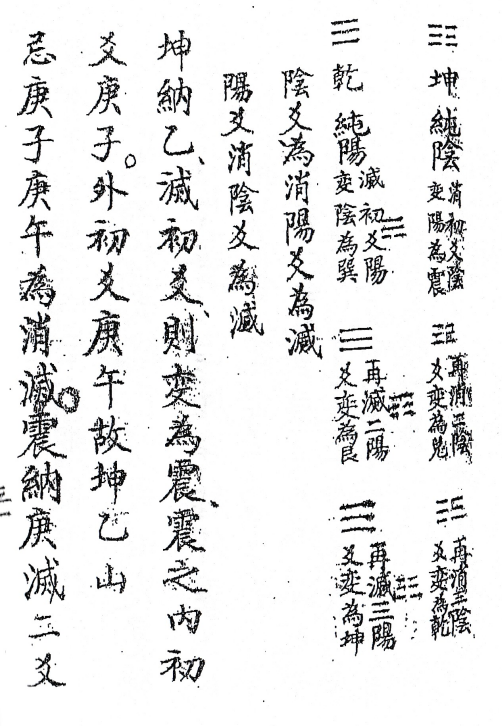 ☷ 坤 純陰 消初爻陰變陽為震 ☳ 再消二陰爻變為兌 ☱ 再消三陰爻變為乾
☰ 乾 純陽 滅初爻陽變陰為巽 ☴ 再滅二陽爻変為艮 ☶ 再滅三陽爻变為坤 ☷
陰爻為消陽爻為滅
陽爻消陰爻為滅
坤納乙、滅初爻、則变為震、震之内初
爻庚子。外初爻庚午故坤乙山
忌庚子庚午為消滅。震納庚滅二爻